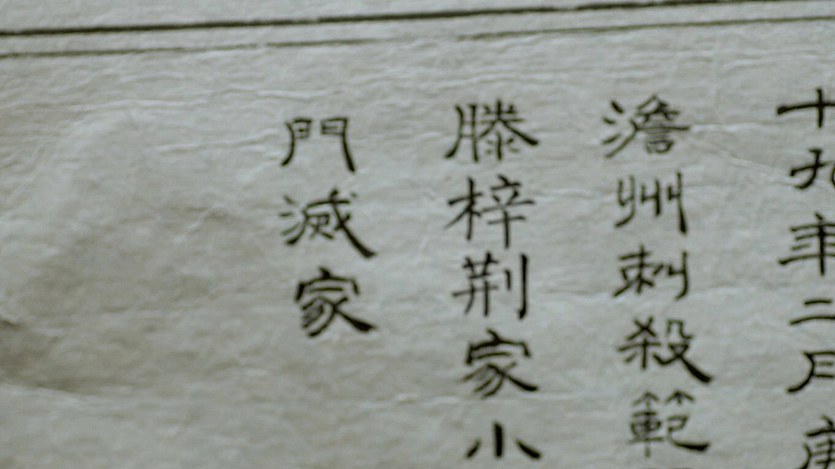 十九年二月庚
澹州刺殺範
滕梓荆家小
門滅家